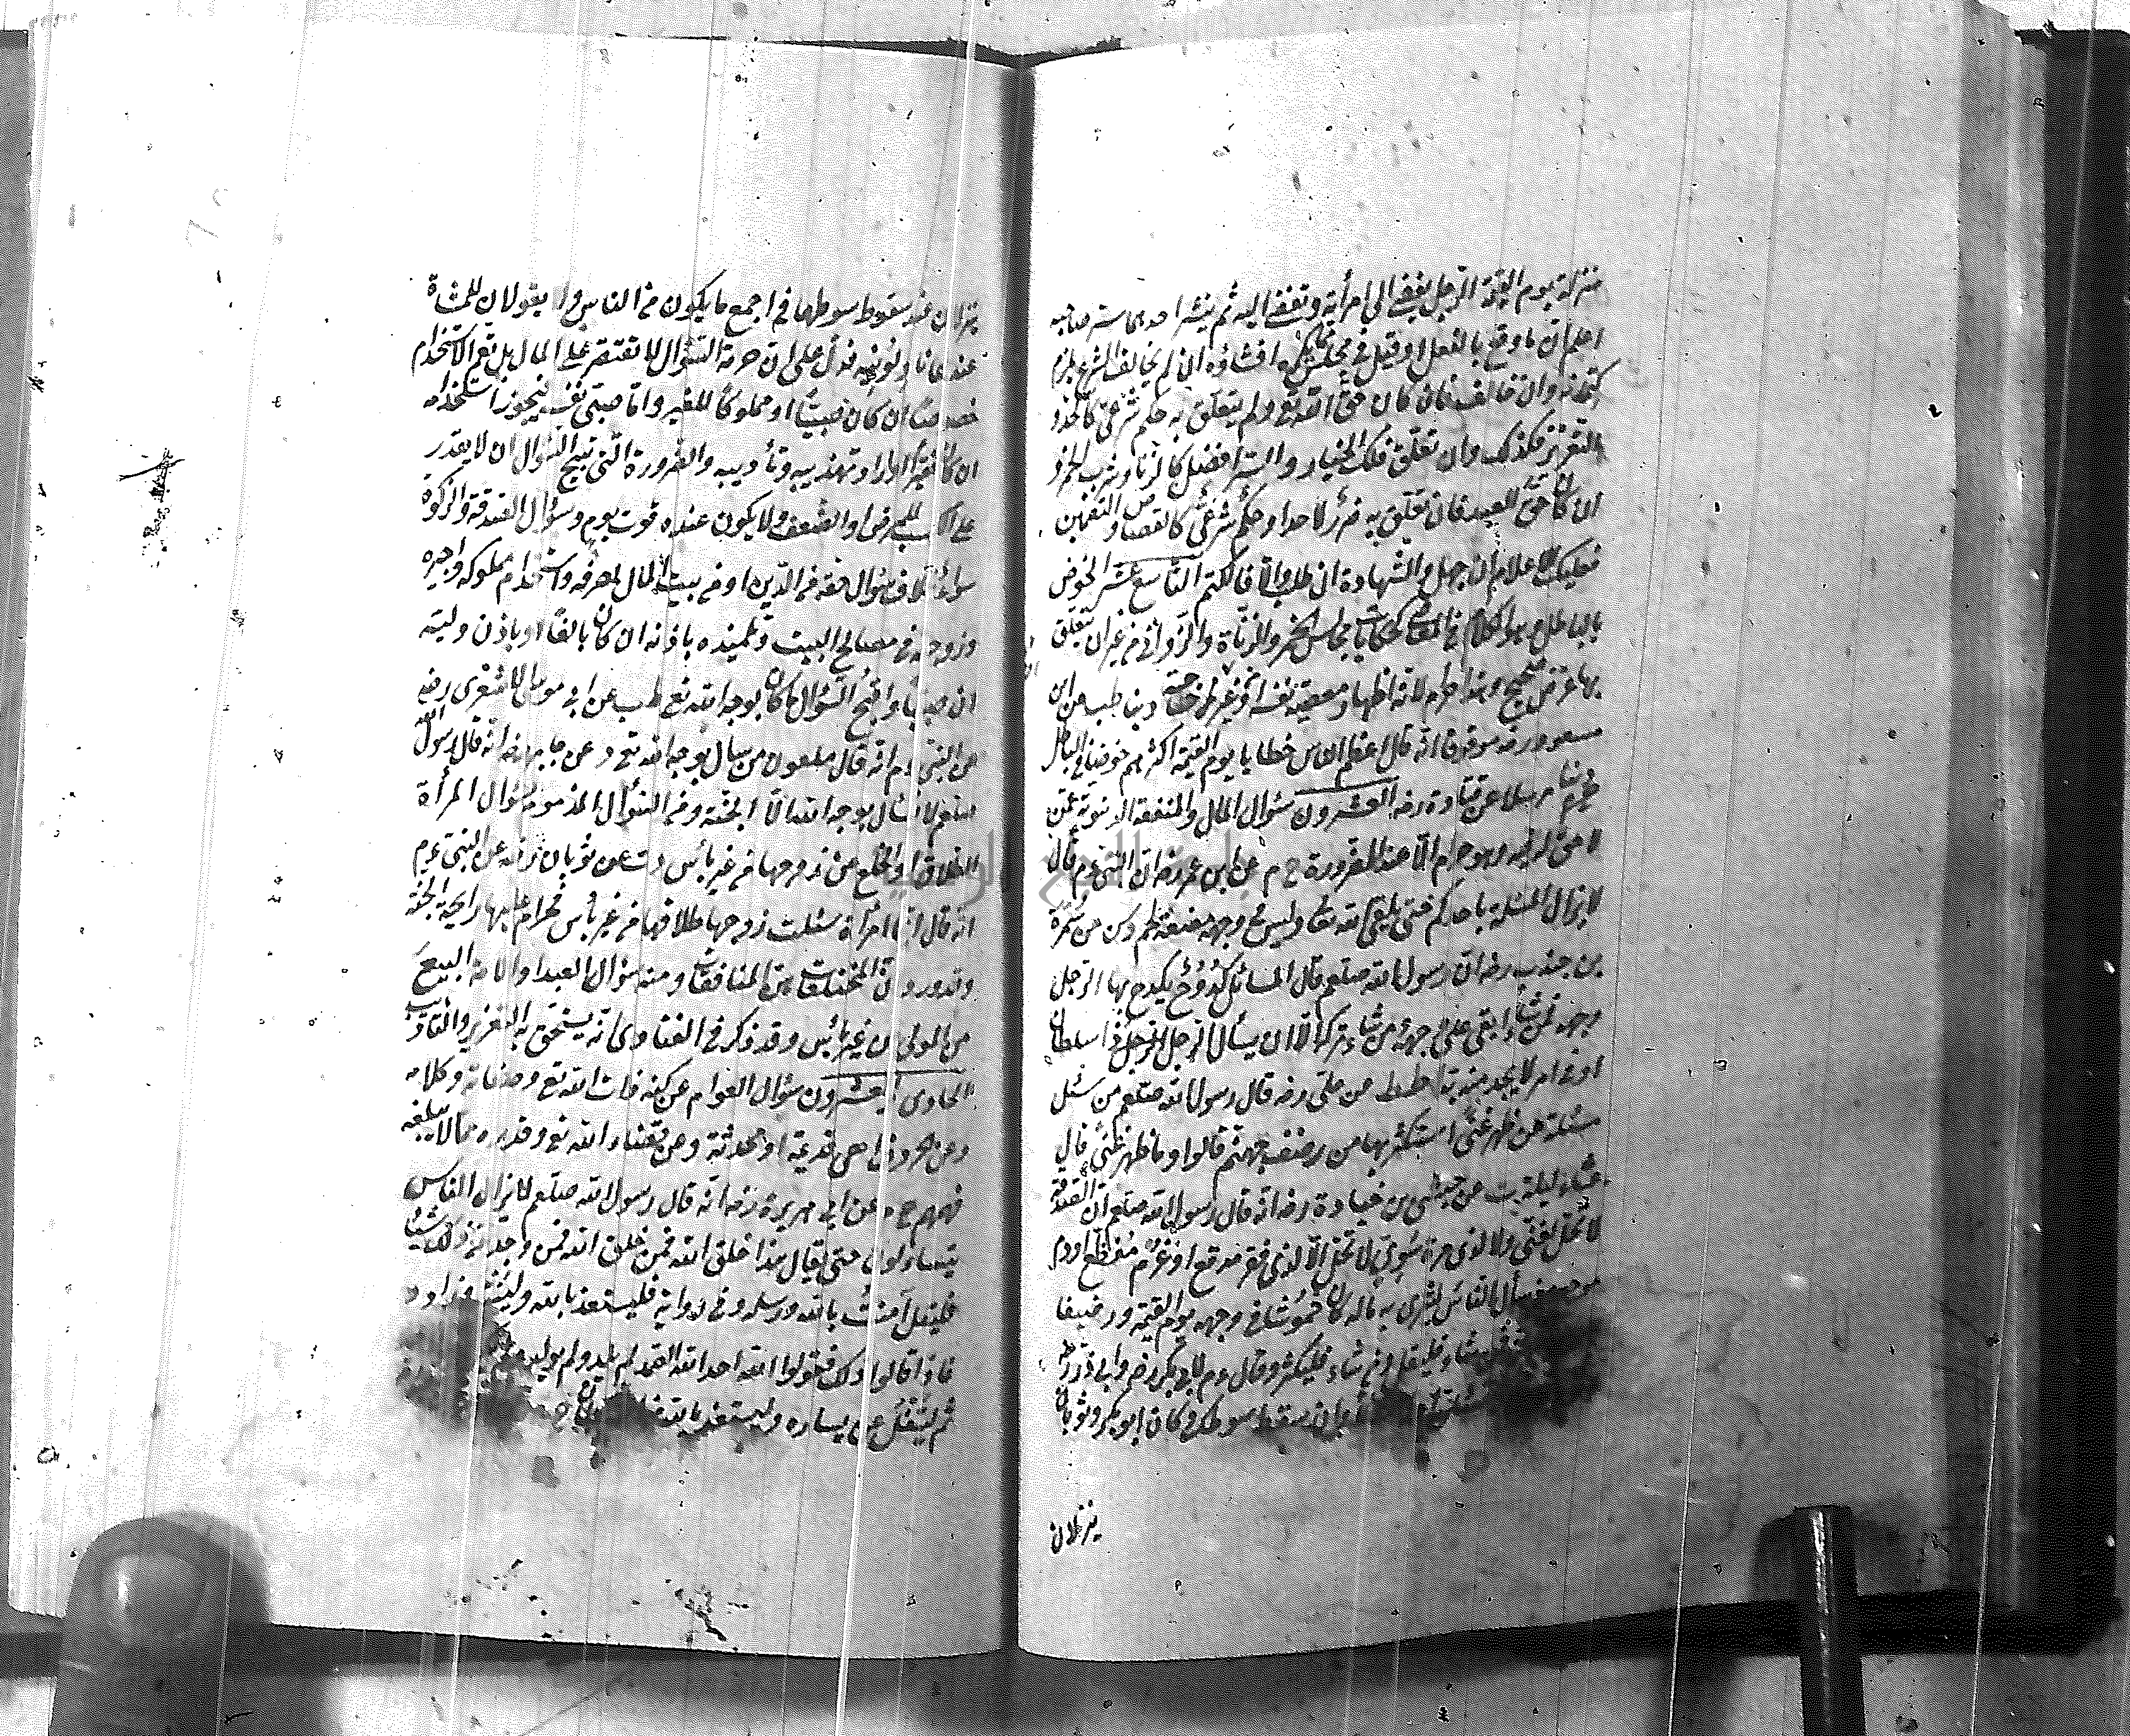 منزلة يوم القيمة الرجل يفضى الى امرأته وتفضى اليه ثم ينشر احدهما سر صاحبه
اعلم ان ما وقع بالفعل او قيل فى مجلس يكره افشاؤه ان لم يخالف الشرع يلزم
كتمانه وان خالف فان كان حق الله تع ولم يتعلق به حكم شرعى كالحد و
التعزير فكذلك وان تعلق فلك الخيار والستر افضل كالزنا وشرب الخمر و
ان كان حق العبد فان تعلق به ضرر لاحد او حكم شرعى كالقصاص والتضمين
فعليك الاعلام ان جهل والشهادة ان طلب والا فالكتم التاسع عشر الخوض
بالباطل هو الكلام فى المعاصى كحكايات مجالس الخمر والزناة والزوانى من غير ان يتعلق
بها غرض صحيح وهذا حرام لانه اظهار معصية نفسه او غيره من غير حاجة دنيا طب عن ابن
مسعود رضه موقوفا انه قال اعظم الناس خطايا يوم القيمة اكثرهم خوضا فى الباطل
مرسلا عن قتادة رضه العشرون سؤال المال والمنفعة الدنيوية ممن
لا حق له فيه وهو حرام الا عند الضرورة خ م عن ابن عمر رضه ان النبى عم قال
لا يزال المسئلة باحدكم حتى يلقى الله تعا وليس فى وجهه مضغة لحم دس عن سمرة
بن جندب رضه ان رسول الله صلعم قال المسائل كدوح يكدح بها الرجل
وجهه فمن شاء ابقى على وجهه ومن شاء تركه الا ان يسأل الرجل ذا سلطان
او فى امر لا يجد منه بدا طط عن على رضه قال رسول الله صلعم من سئل
مسئلة عن ظهر غنى استكثر بها من رضف جهنم قالوا وما ظهر غنى قال
عشاء ليلة ت عن حبشى بن جنادة رضه انه قال رسول الله صلعم ان الصدقة
لا تحل لغنى ولا لذى مرة سوى لا تحل الا لذى فقر مدقع او غرم مفظع او دم
موجع ومن سأل الناس ليثرى به ماله كان خموشا فى وجهه يوم القيمة ورضيفا
فمن شاء فليقل ومن شاء فليكثر وقال عم لابى بكر رضه وابى ذر رضه
وان سقط سوطك وكان ابو بكر وثوبان
ينزلان
ينزلان عند سقوط سوطهما فى اجمع ما يكون من الناس ولا يقولان للمشاة
عندهما ناولونيه فدل على ان حرمة السؤال لا تقتصر على المال بل تعم الاستخدام
خصوصا ان كان صبيا او مملوكا للغير واما صبى نفسه فيجوز استخدامه
ان كان فقيرا او اراد تهذيبه وتأديبه والضرورة التى تبيح السؤال ان لا يقدر
على الكسب للمرض او الضعف ولا يكون عنده قوت يوم وسؤال الصدقة والزكوة
سواء بخلاف سؤال حقه من الدين او من بيت المال لمصرفه واستخدام مملوكه واجيره
وزوجته فى مصالح البيت وتلميذه باذنه ان كان بالغا او باذن وليه
ان صبيا واقبح السؤال ما كان بوجه الله تع طب عن ابى موسى الاشعرى رضه
عن النبى عم انه قال ملعون من سأل بوجه الله تع د عن جابر رضه انه قال رسول الله
صلعم لا يسأل بوجه الله الا الجنة ومن السؤال المذموم سؤال المرأة
الطلاق او الخلع من زوجها من غير بأس دت عن ثوبان رضه عن النبى عم
انه قال ايما امرأة سئلت زوجها طلاقها من غير بأس فحرام عليها رايحة الجنة
وقد ورد ان المختلعات هن المنافقات ومنه سؤال العبد او الامة البيع
من المولى من غير بأس وقد ذكر فى الفتاوى انه يستحق به التعزير والتأديب
الحادى والعشرون سؤال العوام عن كنه ذات الله تع وصفاته وكلامه
وعن الحروف اهى قديمة او محدثة وعن قضاء الله تع وقدره مما لا يبلغه
فهمهم خ م عن ابى هريرة رضه انه قال رسول الله صلعم لا يزال الناس
يتساءلون حتى يقال هذا خلق الله فمن خلق الله فمن وجد من ذلك شيئا
فليقل آمنت بالله ورسله وفى رواية فليستعذ بالله ولينته وزاد د
فاذا قالوا ذلك فقولوا الله احد الله الصمد لم يلد ولم يولد
ثم ليتفل عن يساره وليستعذ بالله